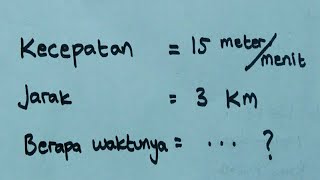 Kecepatan = 15 meter/menit
Jarak = 3 Km
Berapa waktunya = ... ?